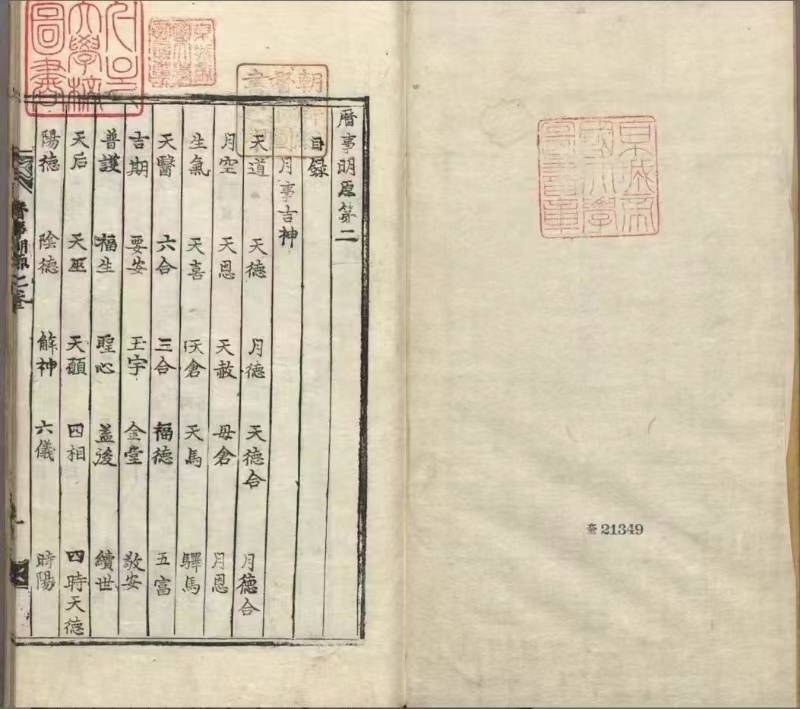 曆事明原第二
目録
月事吉神
天道 天德 月德 天德合 月德合
月空 天恩 天赦 母倉 月恩
生氣 天喜 天倉 天馬 驛馬
天醫 六合 三合 福德 五富
吉期 要安 玉宇 金堂 敬安
普護 福生 聖心 益後 續世
天后 天巫 天願 四相 四時天德
陽德 陰德 解神 六儀 時陽
京城帝國大學圖書章
奎 21349